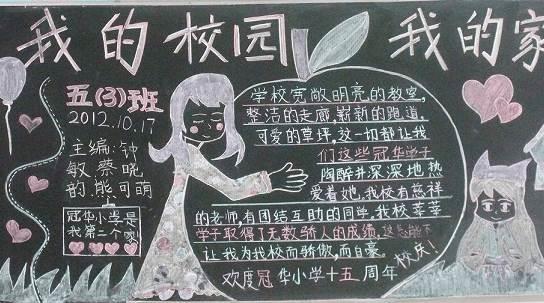 我的校园 我的家
五(3)班
2012.10.17
主编:钟
敏 蔡晓
韵 熊可萌
冠华小学是
我第二个家
学校宽敞明亮的教室,
整洁的走廊,崭新的跑道,
可爱的草坪,这一切都让我
们这些冠华学子
陶醉并深深地热
爱着她,我校有慈祥
的老师,有团结互助的同学,我校莘莘
学子取得了无数骄人的成绩,这怎能不
让我为我校而骄傲,而自豪。
校庆!
欢度冠华小学十五周年